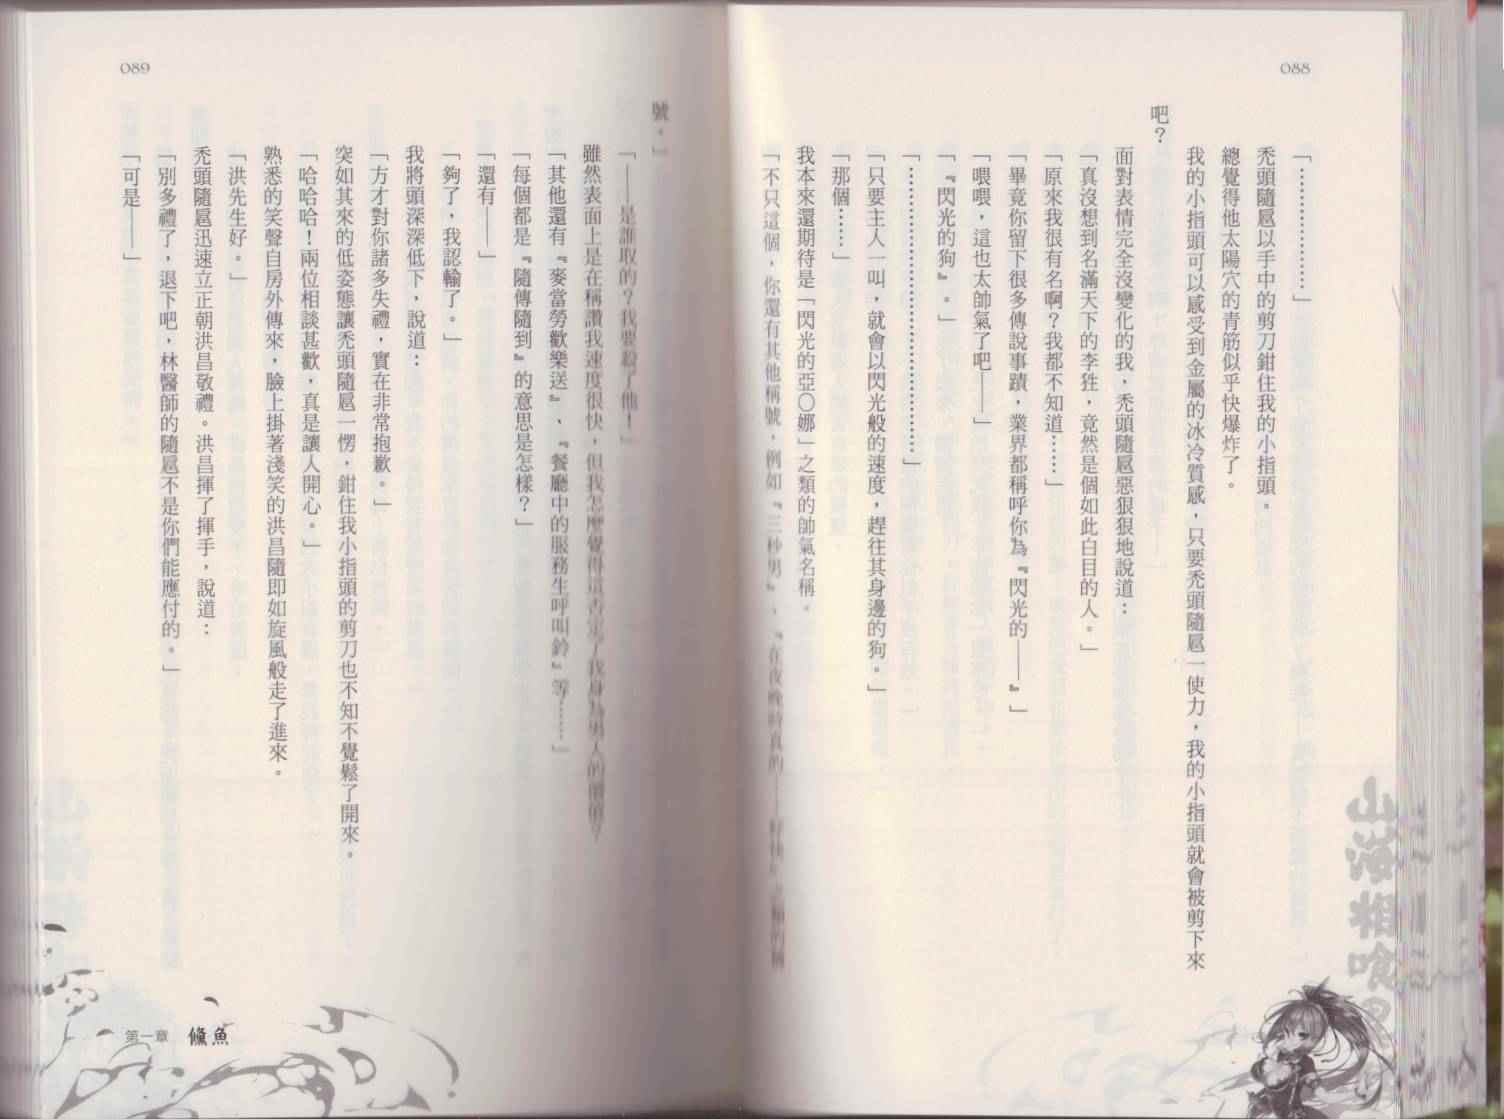 088
「………………」
禿頭隨扈以手中的剪刀鉗住我的小指頭。
總覺得他太陽穴的青筋似乎快爆炸了。
我的小指頭可以感受到金屬的冰冷質感，只要禿頭隨扈一使力，我的小指頭就會被剪下來
吧？
面對表情完全沒變化的我，禿頭隨扈惡狠狠地說道：
「真沒想到名滿天下的李狌，竟然是個如此白目的人。」
「原來我很有名啊？我都不知道……」
「畢竟你留下很多傳說事蹟，業界都稱呼你為『閃光的——』」
「喂喂，這也太帥氣了吧——」
「『閃光的狗』。」
「………………………………………」
「只要主人一叫，就會以閃光般的速度，趕往其身邊的狗。」
「那個……」
我本來還期待是「閃光的亞〇娜」之類的帥氣名稱。
「不只這個，你還有其他稱號，例如『三秒男』、『在夜晚時真的——好快』之類的稱
號。」
「——是誰取的？我要殺了他！」
雖然表面上是在稱讚我速度很快，但我怎麼覺得這否定了我身為男人的價值？
「其他還有『麥當勞歡樂送』、『餐廳中的服務生呼叫鈴』等……」
「每個都是『隨傳隨到』的意思是怎樣？」
「還有——」
「夠了，我認輸了。」
我將頭深深低下，說道：
「方才對你諸多失禮，實在非常抱歉。」
突如其來的低姿態讓禿頭隨扈一愣，鉗住我小指頭的剪刀也不知不覺鬆了開來。
「哈哈哈！兩位相談甚歡，真是讓人開心。」
熟悉的笑聲自房外傳來，臉上掛著淺笑的洪昌隨即如旋風般走了進來。
「洪先生好。」
禿頭隨扈迅速立正朝洪昌敬禮。洪昌揮了揮手，說道：
「別多禮了，退下吧，林醫師的隨扈不是你們能應付的。」
「可是——」
089
第一章 鯈魚
山海相喰